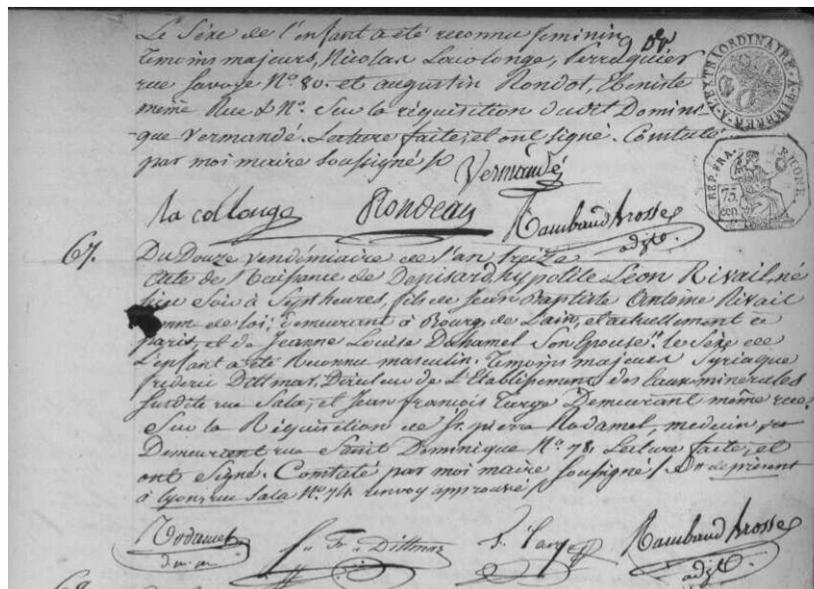 Le Sexe de l'enfant a été reconnu feminin,
Temoins majeurs, Nicolas Lacolonge, Perruquier
rue Savoye N.º 80. et augustin Rondot, Ebeniste
même Rue & N.º Sur la réquisition dudit Domini-
que Vermandé. Lecture faite; et ont signé. Constaté
par moi maire soussigné
Vermandé
la collonge Rondeau Rambaud brosse
adjt.
EXTRAORDINAIRE
REP. FRA. RHONE.
75. cen
67. Du Douze vendémiaire de l'an treize
acte de Naissance de Denisard, hypolite Léon Rivail, né
hier Soir à Sept heures, fils de Jean Baptiste Antoine Rivail
homme de loi; demeurant à Bourg de l'ain, et actuellement à
paris, et de Jeanne Louise Duhamel Son épouse: le Sexe de
L'enfant a été Reconnu masculin. Temoins majeurs Syriaque
frideric Dittmar, Directeur de L'Etablissement des Eaux minerales
Susdite rue Sala; et Jean françois Targe Demeurant même rue.
Sur la Réquisition de pierre Radamel, medecin
Demeurant rue Saint Dominique N.º 78. Lecture faite; et
ont Signé. Constaté par moi maire soussigné de présent
à lyon, rue Sala N.º 74. renvoy approuvé
Radamel Fr. Dittmar Targe Rambaud brosse
adjt.
68.